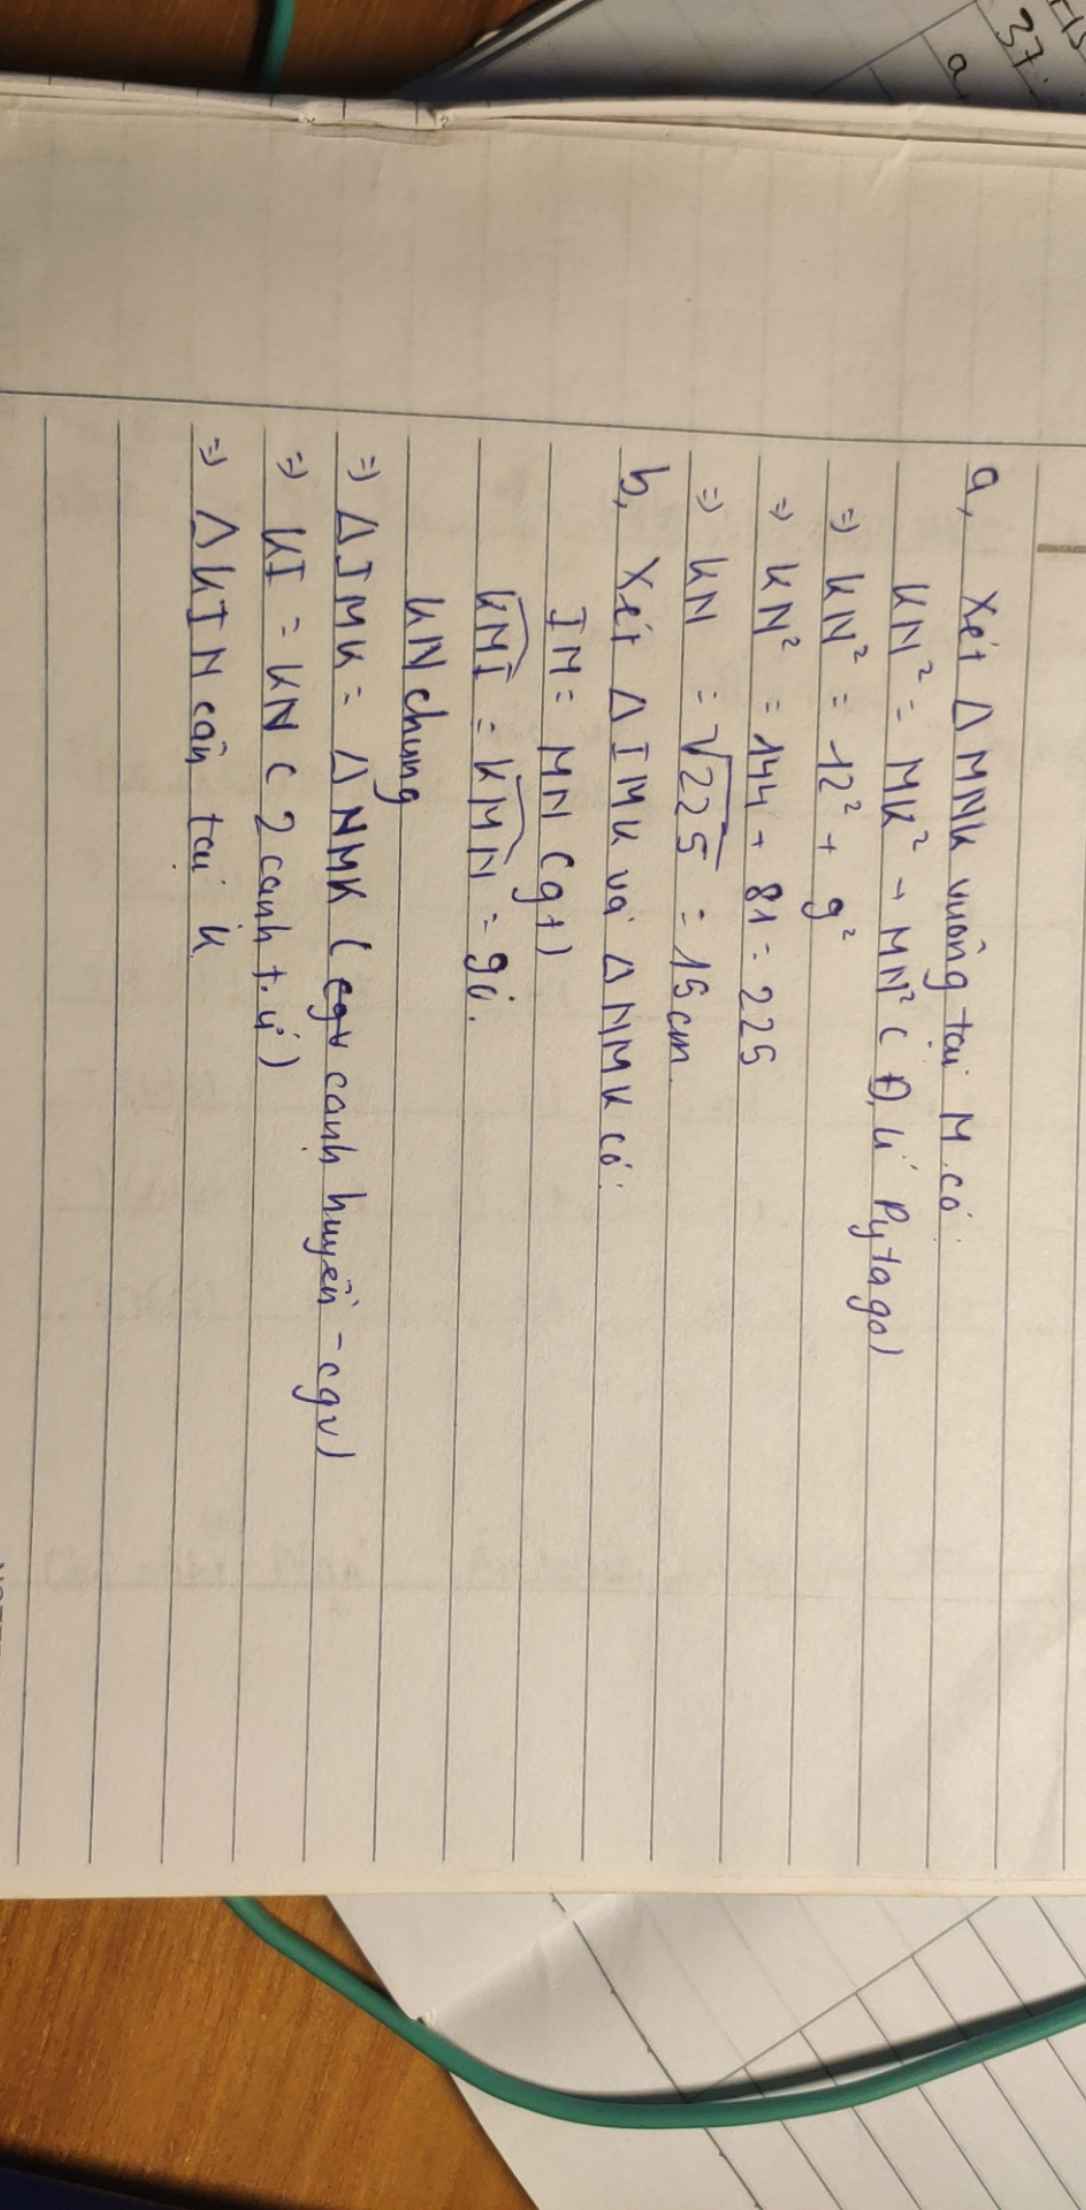 37.
a
a, Xét Δ MNK vuông tại M có
KN² = MK² + MN² ( Đ, lí Pytago)
=> KN² = 12² + 9²
=> KN² = 144 + 81 = 225
=> KN = √225 = 15cm
b, Xét Δ IMK và Δ NMK có:
IM = MN (gt)
KMI = KMN = 90°.
KN chung
=> Δ IMK = Δ NMK ( cgv cạnh huyền - cgv)
=> KI = KN ( 2 cạnh t.ư)
=> Δ KIN cân tại K